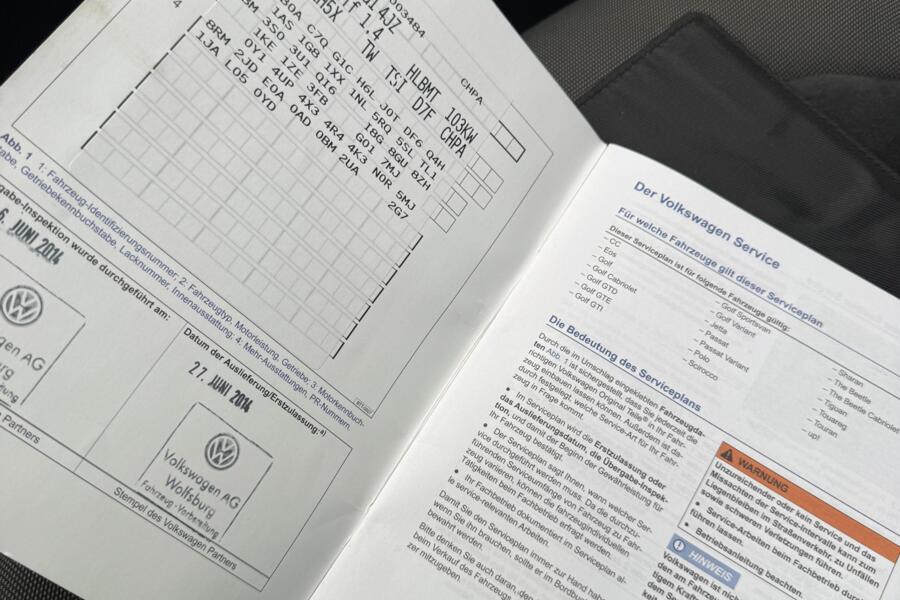 003484
4JZ
4
HLBMT 103KW CHPA
1.4 TW TSI D7F CHPA
C7Q G1C H6L J0T DF6 Q4H
1AS 1G8 1XX 1NL 5RQ 5SL TL1
3S0 3U1 QI6 I8G 8GU 8ZH
1KE 1ZE 3FB
8RM 0Y1 4UP 4X3 4R4 G01 7MJ
1JA 2JD E0A 0AD 4K3 N0R 5MJ
L05 0BM 2UA 2G7
0YD
Abb. 1 1: Fahrzeug-Identifizierungsnummer, 2: Fahrzeugtyp, Motorleistung, Getriebe; 3: Motorkennbuch-
stabe, Getriebekennbuchstabe, Lacknummer, Innenausstattung; 4: Mehr-Ausstattungen, PR-Nummern.
gabe-Inspektion wurde durchgeführt am:
6. JUNI 2014
Datum der Auslieferung/Erstzulassung:a)
27. JUNI 2014
gen AG
Partners
Volkswagen AG
Wolfsburg
Fahrzeug-Vorbereitung
Stempel des Volkswagen Partners
Der Volkswagen Service
Für welche Fahrzeuge gilt dieser Serviceplan
Dieser Serviceplan ist für folgende Fahrzeuge gültig:
– CC
– Eos
– Golf
– Golf Cabriolet
– Golf GTD
– Golf GTE
– Golf GTI
– Golf Sportsvan
– Golf Variant
– Jetta
– Passat
– Passat Variant
– Polo
– Scirocco
– Sharan
– The Beetle
– The Beetle Cabriolet
– Tiguan
– Touareg
– Touran
– up!
Die Bedeutung des Serviceplans
Durch die im Umschlag eingeklebten Fahrzeugda-
ten Abb. 1 ist sichergestellt, dass Sie jederzeit die
richtigen Volkswagen Original Teile® in Ihr Fahr-
zeug einbauen lassen können. Außerdem ist da-
durch festgelegt, welche Service-Art für Ihr Fahr-
zeug in Frage kommt.
• Im Serviceplan wird die Erstzulassung oder
das Auslieferungsdatum, die Übergabe-Inspek-
tion, und damit der Beginn der Gewährleistung für
Ihr Fahrzeug bestätigt.
• Der Serviceplan sagt Ihnen, wann welcher Ser-
vice durchgeführt werden muss. Da die durchzu-
führenden Serviceumfänge von Fahrzeug zu Fahr-
zeug variieren, können die fahrzeugindividuellen
Tätigkeiten beim Fachbetrieb erfragt werden.
• Ihr Fachbetrieb dokumentiert im Serviceplan al-
le service-relevanten Arbeiten.
Damit Sie den Serviceplan immer zur Hand haben,
wenn Sie ihn brauchen, sollte er im Bordbuch
bewahrt werden.
Bitte denken Sie auch daran, den
beim Verkauf des Fahrzeugs
zer mitzugeben.
WARNUNG
Unzureichender oder kein Service und das
Missachten der Service-Intervalle kann zum
Liegenbleiben im Straßenverkehr, zu Unfällen
sowie schweren Verletzungen führen.
• Service-Arbeiten beim Fachbetrieb durch-
führen lassen.
• Betriebsanleitung beachten.
HINWEIS
Volkswagen ist nicht
den am Fahrzeug
tigem Kraft
dem Se